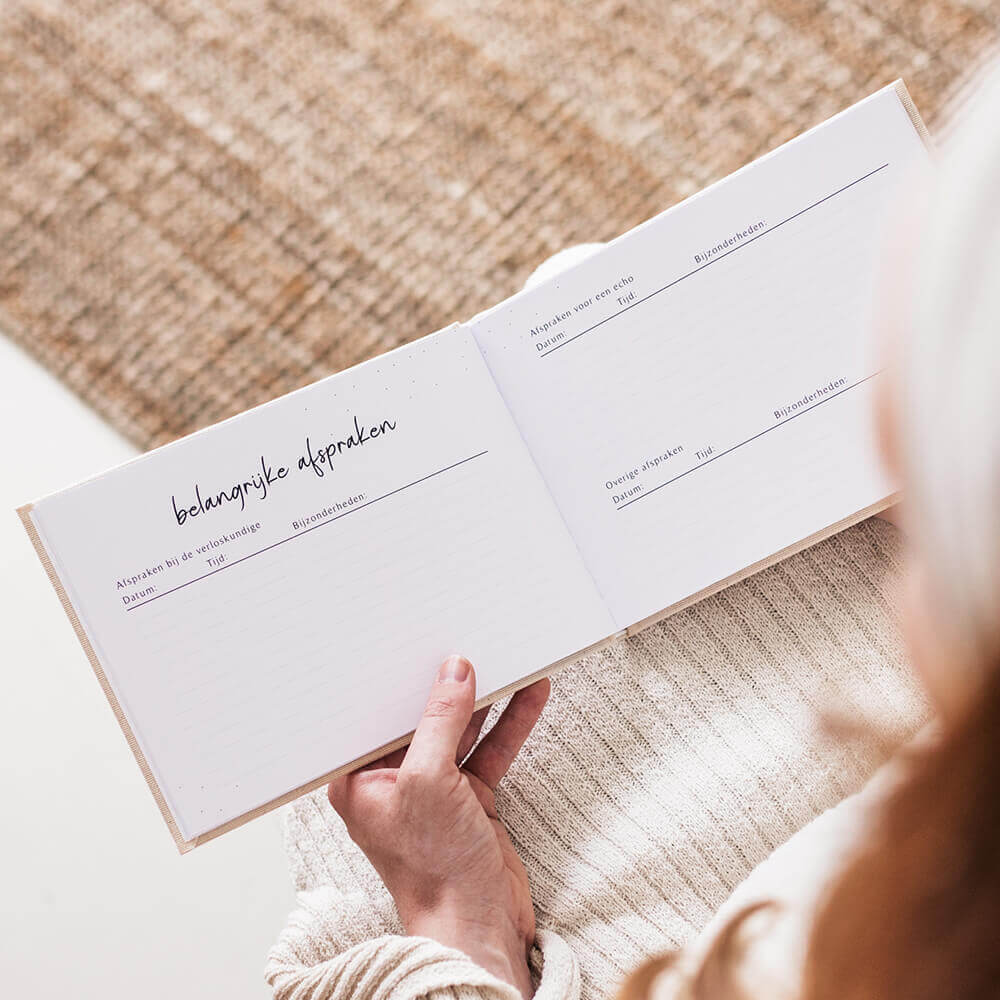 belangrijke afspraken
Afspraken bij de verloskundige
Datum: Tijd: Bijzonderheden:
Afspraken voor een echo
Datum: Tijd: Bijzonderheden:
Overige afspraken
Datum: Tijd: Bijzonderheden: